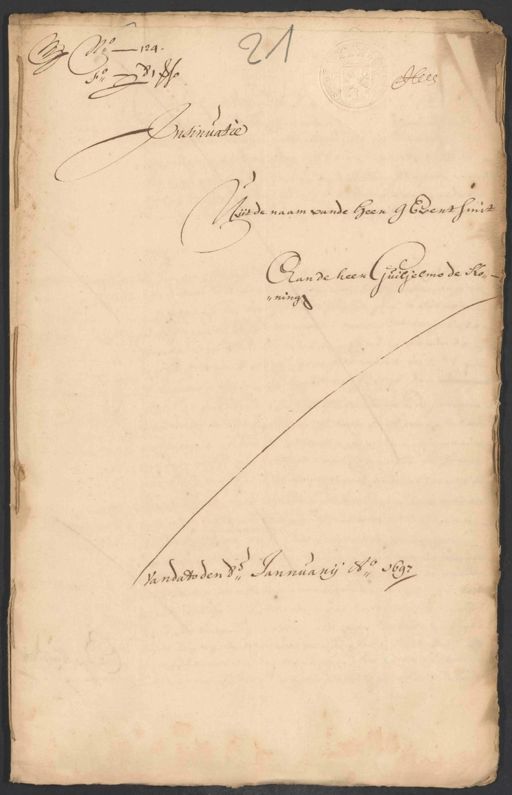 N:o — 124.
21
F:o — 781
Insinuatie
Uijt de naam van de heer g Evert Smit
Aan de heer Guiljelmo de Ko-
"ning
Van dato den 8:e Jannuarij A:o 1697